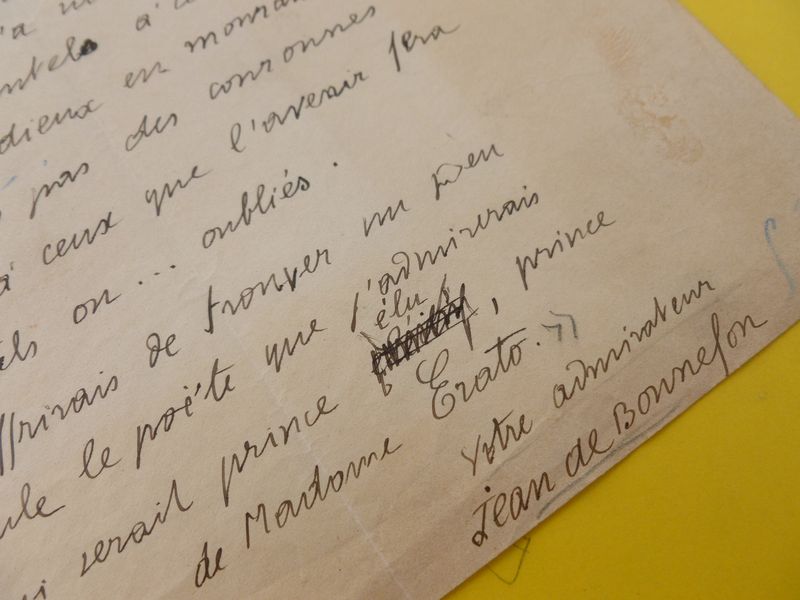 à
en mourant
pas des couronnes
à ceux que l'avenir fera
on... oubliés.
de trouver un Dieu
le poète que j'admirerais
serait prince élu, prince
de Madame Erato. »
Votre admirateur
Jean de Bonnefon